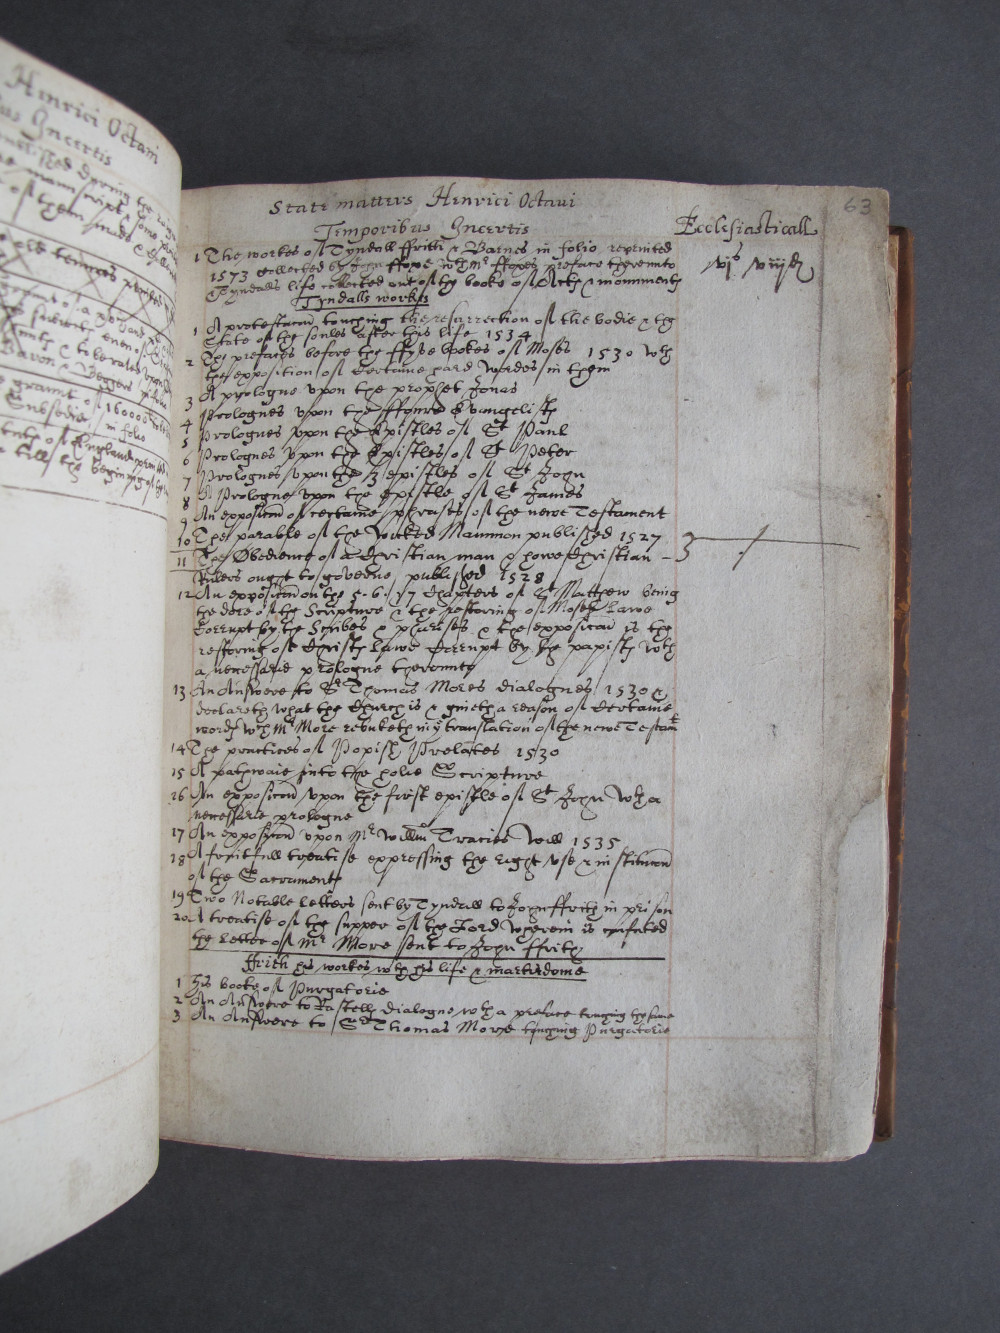 Henrici Octaui
Incertis
in folio
63
State matters Henrici Octaui
Temporibus Incertis
Ecclesiasticall
1 The workes of Tyndall ffrith & Barnes in folio reprinted
1573 collected by John ffoxe wth Mr ffoxes preface therevnto
Tyndalls life collected out of the booke of Acts & monuments
vjs viijd
Tyndalls workes
1 A protestacōn touching the resurrection of the bodie & the
State of the soules after this life 1534
2 The prefaces before the ffyve bookes of Moses 1530 wth
the exposition of certaine hard wordes in them
3 A prologue vpon the prophet Jonas
4 Prologues vpon the ffower Evangelists
5 Prologues vpon the Epistles of St Paul
6 Prologues vpon the Epistles of St Peter
7 Prologues vpon the 3 epistles of St John
8 A Prologue vpon the epistle of St James
9 An exposicōn of certaine phrases of the newe Testament
10 The parable of the wicked Mammon published 1527
11 The Obedience of a Christian man & howe Christian
Rulers ought to governe, published 1528
12 An exposicōn on the 5. 6. & 7 Chapters of St Matthew being
the dore of the Scripture & the restoring of Moses Lawe
Corrupt by the Scribes & pharises & the exposicōn is the
restoring of Christs Lawe Corrupt by the papists wth
a necessarie prologue therevnto
13 An Answere to Sr Thomas Mores dialogues 1530 &
declareth what the Church is & giveth a reason of certaine
words wch Mr More rebuketh in ye translation of the newe Testamt
14 The practices of Popish Prelates 1530
15 A pathwaie into the holie Scripture
16 An exposicōn vpon the first epistle of St John wth a
necessarie prologue
17 An exposicōn vpon Mr Willm Tracies Will 1535
18 A fruitfull treatise expressing the right vse & institucōn
of the Sacraments
19 Two Notable Letters sent by Tyndall to John ffrith in prison
20 A treatise of the supper of the Lord wherein is confuted
the Letter of Mr More sent to John ffrith
ffrith his workes wth his life & martirdome
1 His booke of Purgatorie
2 An Answere to Rastells dialogue wth a preface touching the same
3 An Answere to Sr Thomas More touching Purgatorie